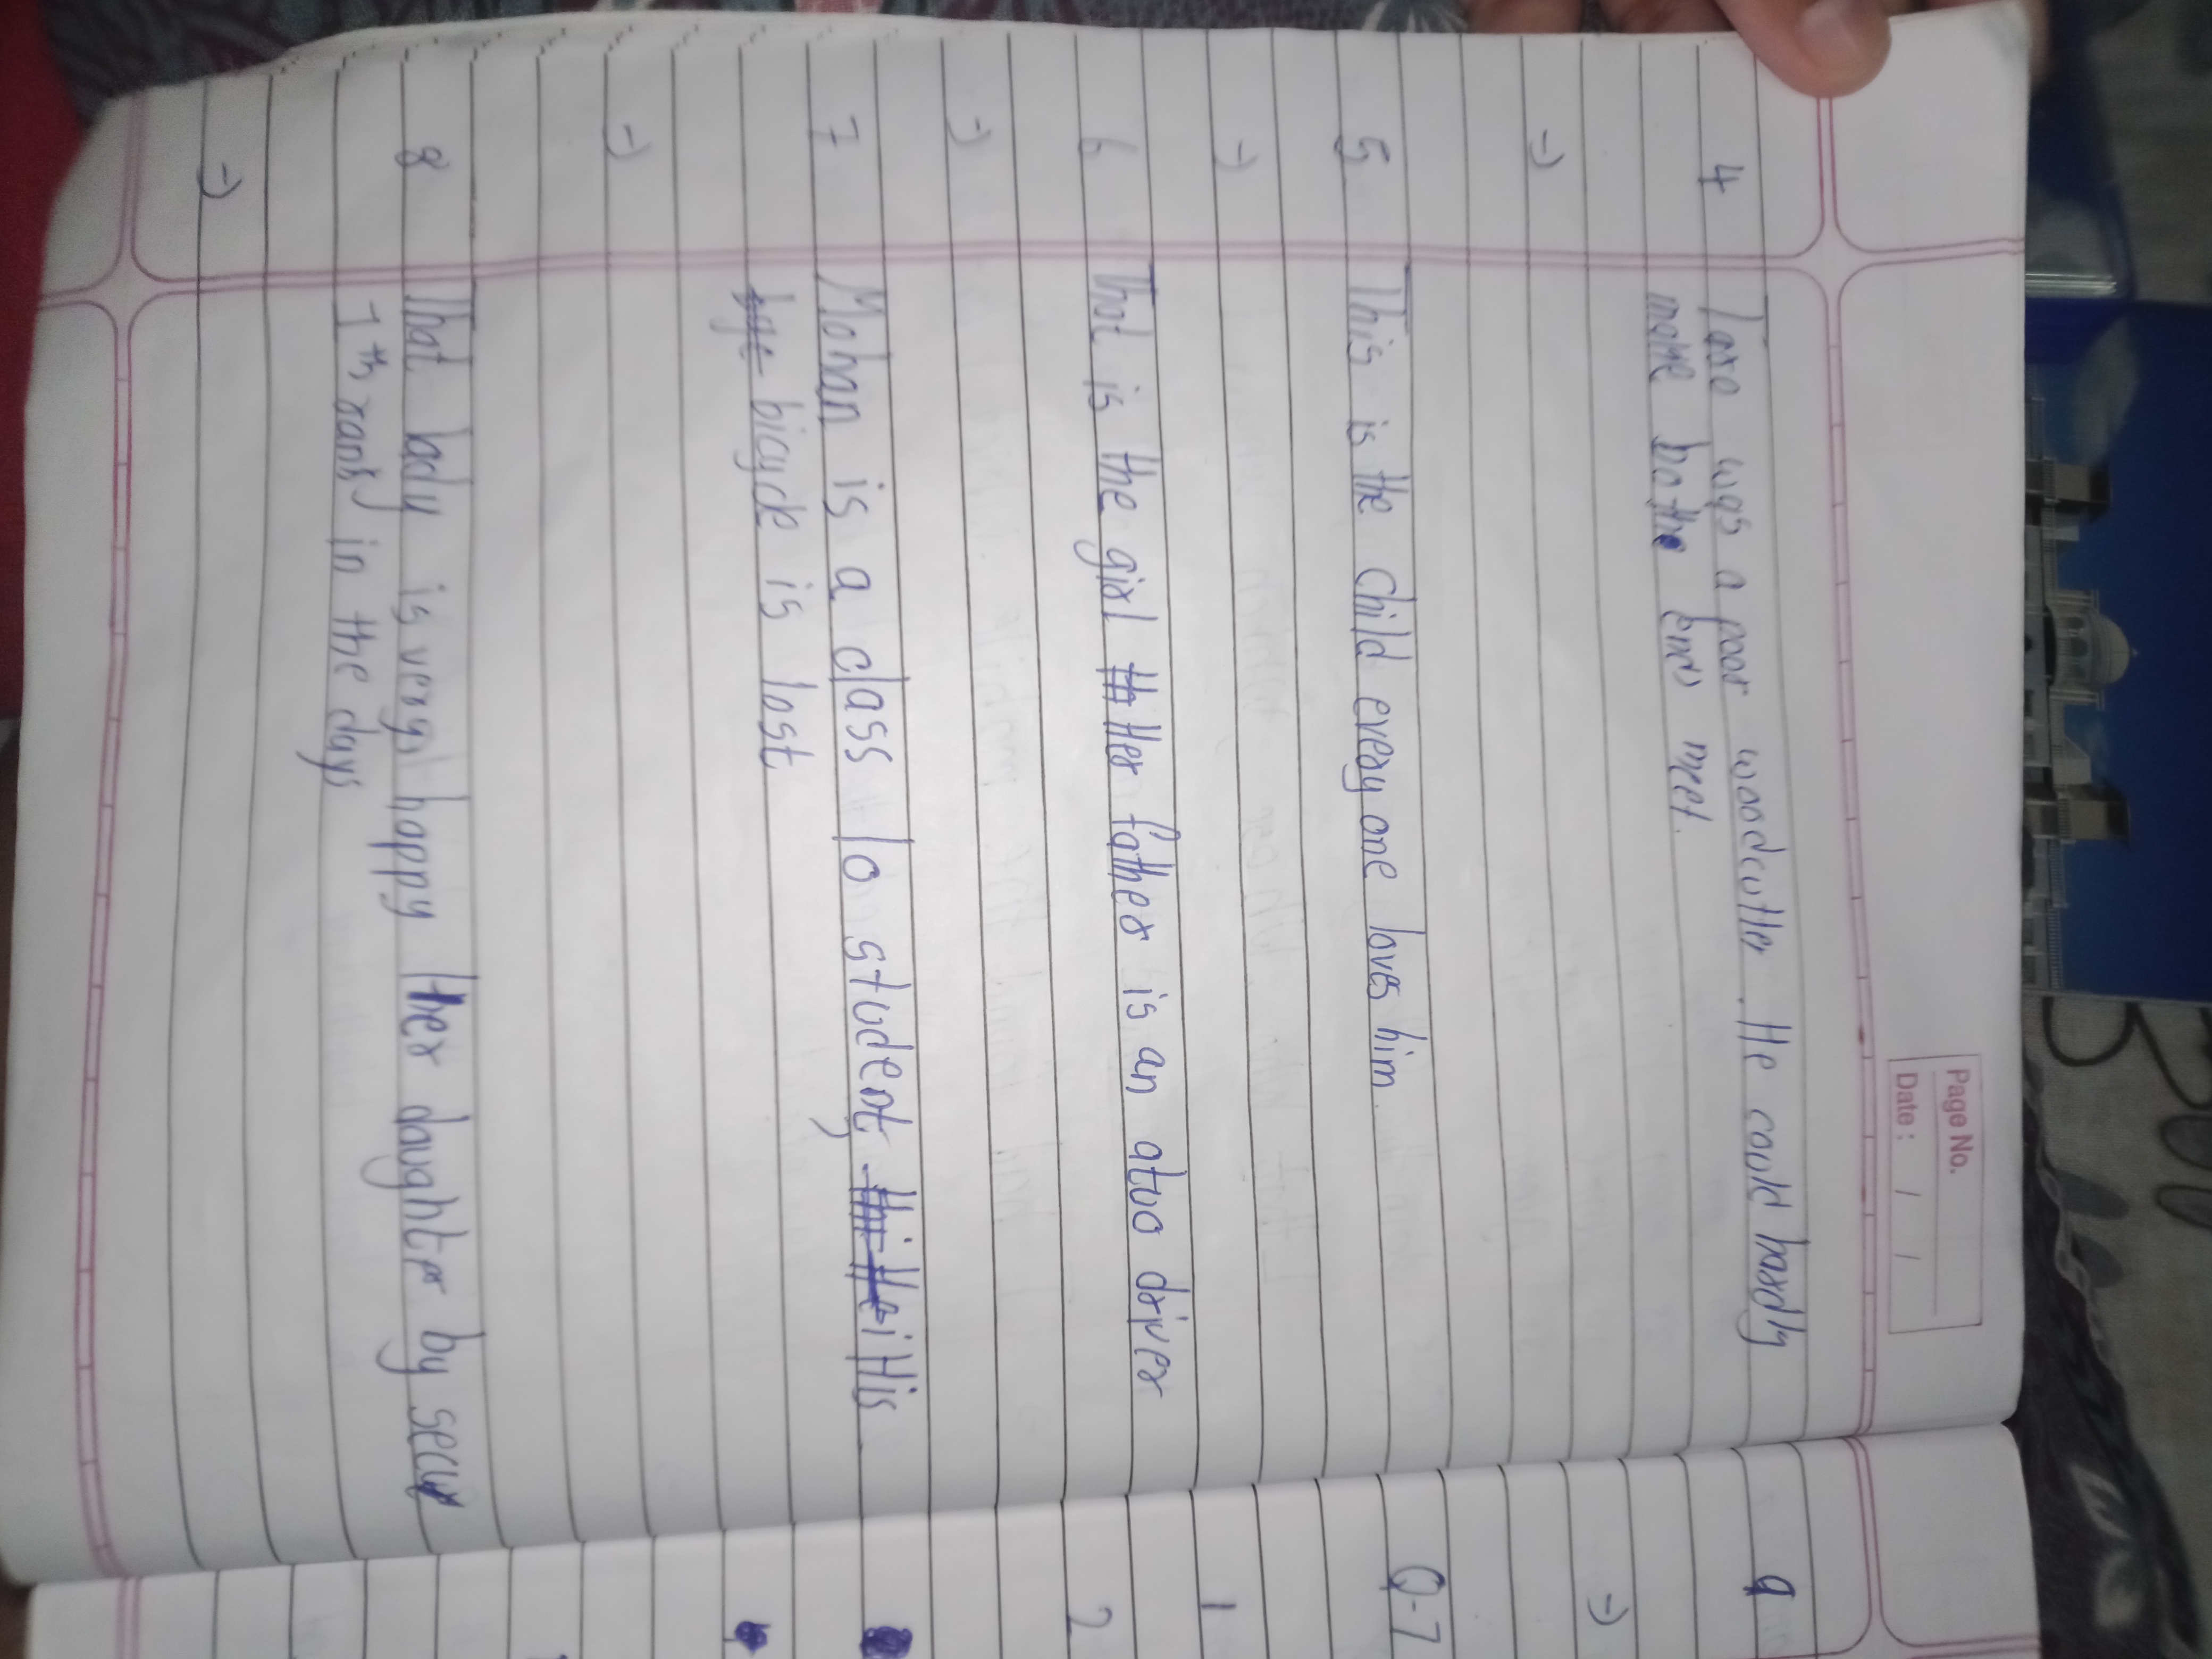 Page No.
Date : / /
4 Tare was a poor woodcutter. He could hardly
make bothe end meet.
-)
5 This is the child every one loves him.
-)
6 That is the girl Her father is an atuo driver
-)
7 Mohan is a class 10 student, His
bicycle is lost
-)
8 That lady is very happy Her daughter by secur
1th rank in the days
-)
9
-)
Q-7
1
2